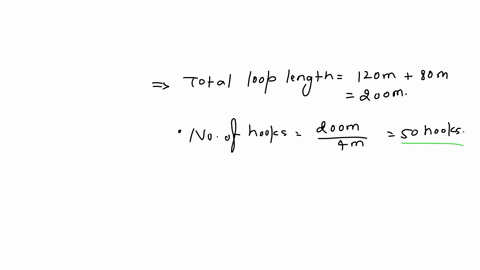 ⇒ Total loop length = 120m + 80m
= 200m.
• No. of hooks = 200m/4m = 50 hooks.